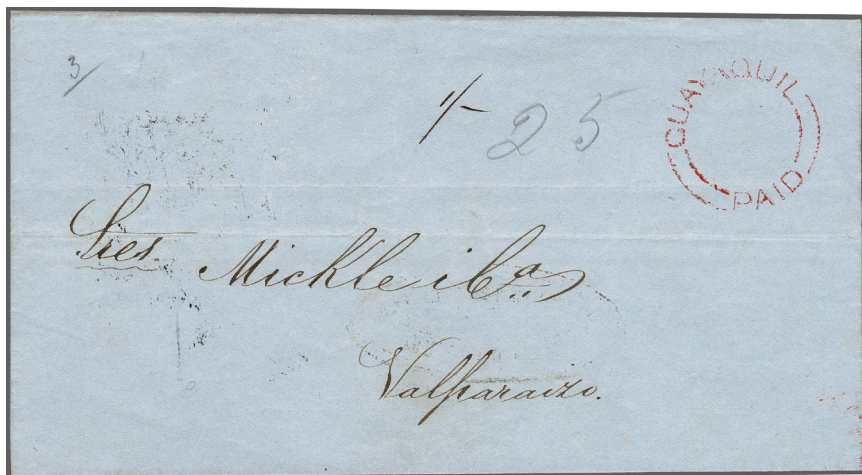 3/
1/- 25
GUAYAQUIL
PAID
Sres. Mickle i Ca
Valparaizo.